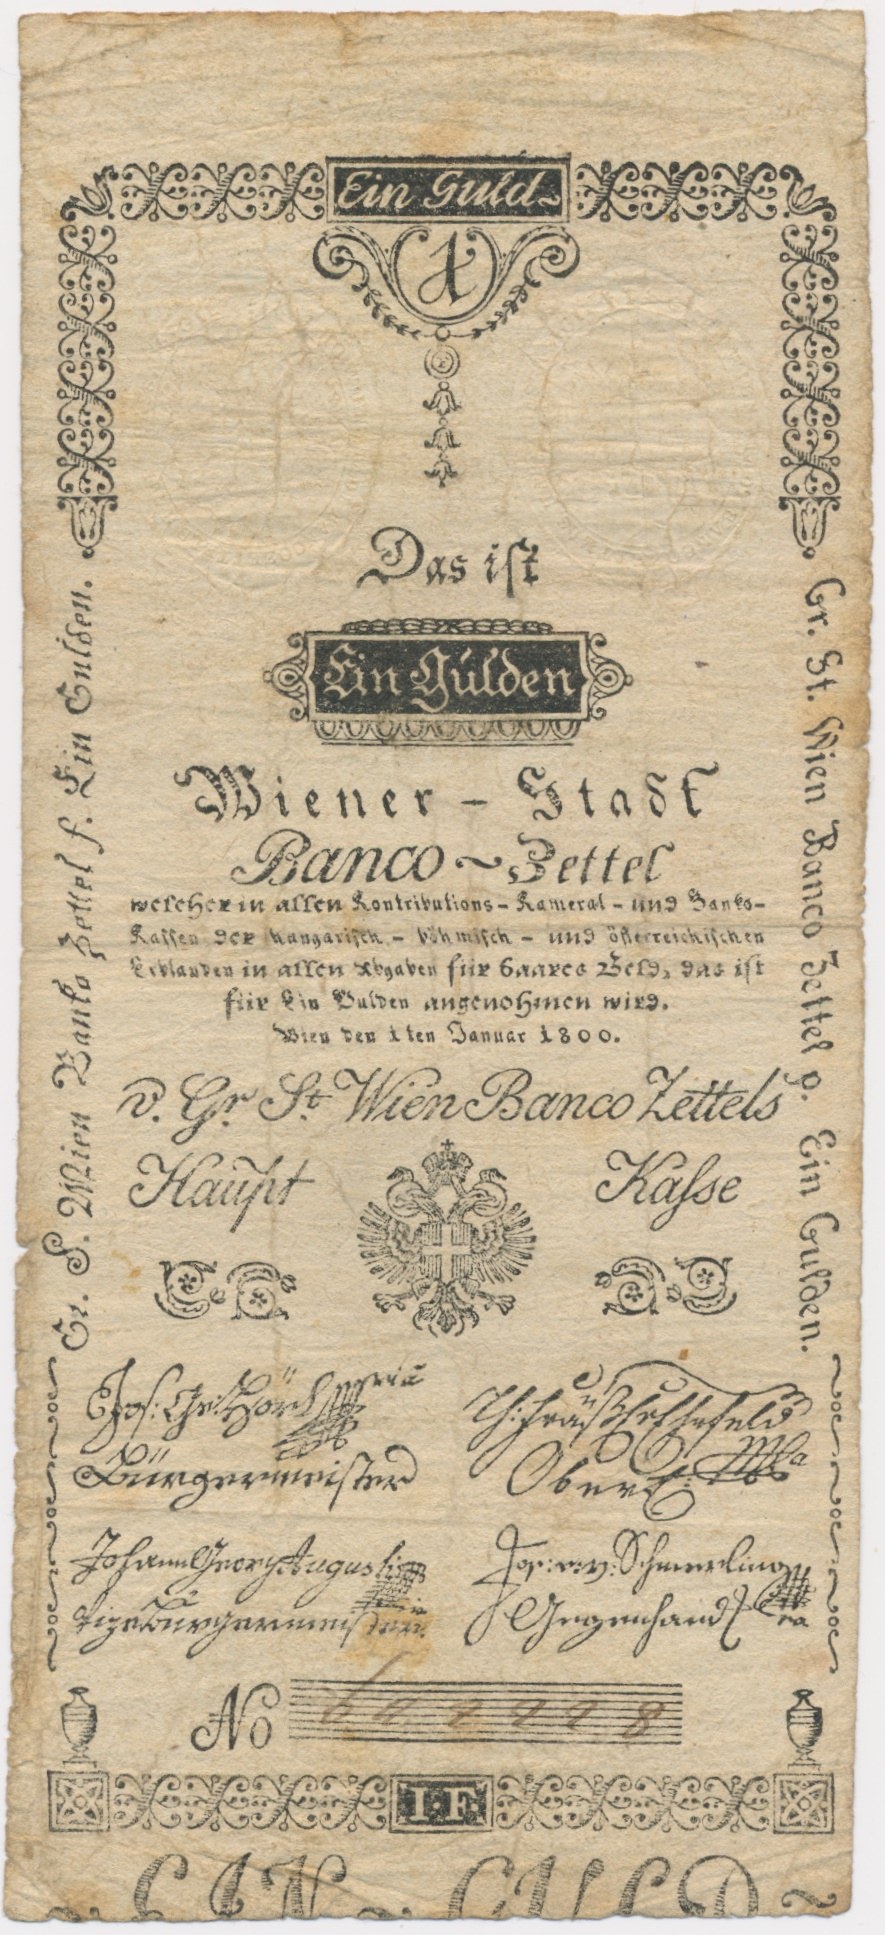 Ein Guld~
1
Das ist
Ein Gulden
Wiener - Stadt
Banco ~ Zettel
welcher in allen Kontributions - Kameral - und Banko-
Kassen der hungarisch - böhmisch - und österreichischen
Erblanden in allen Abgaben für baares Geld, das ist
für Ein Gulden angenohmen wird.
Wien den 1ten Januar 1800.
v. Gr. St. Wien Banco Zettels
Haupt Kasse
Gr. S. Wien Banko Zettel f. Ein Gulden.
Gr. St. Wien Banco Zettel p. Ein Gulden.
Jos: Ge: Hörl
Bürgermeister
Johann Georg Augusti
Vizebürgermeister
Jos: v: Schmerling
Gegenhand
No
I·F.
~ EIN ~ GULD ~